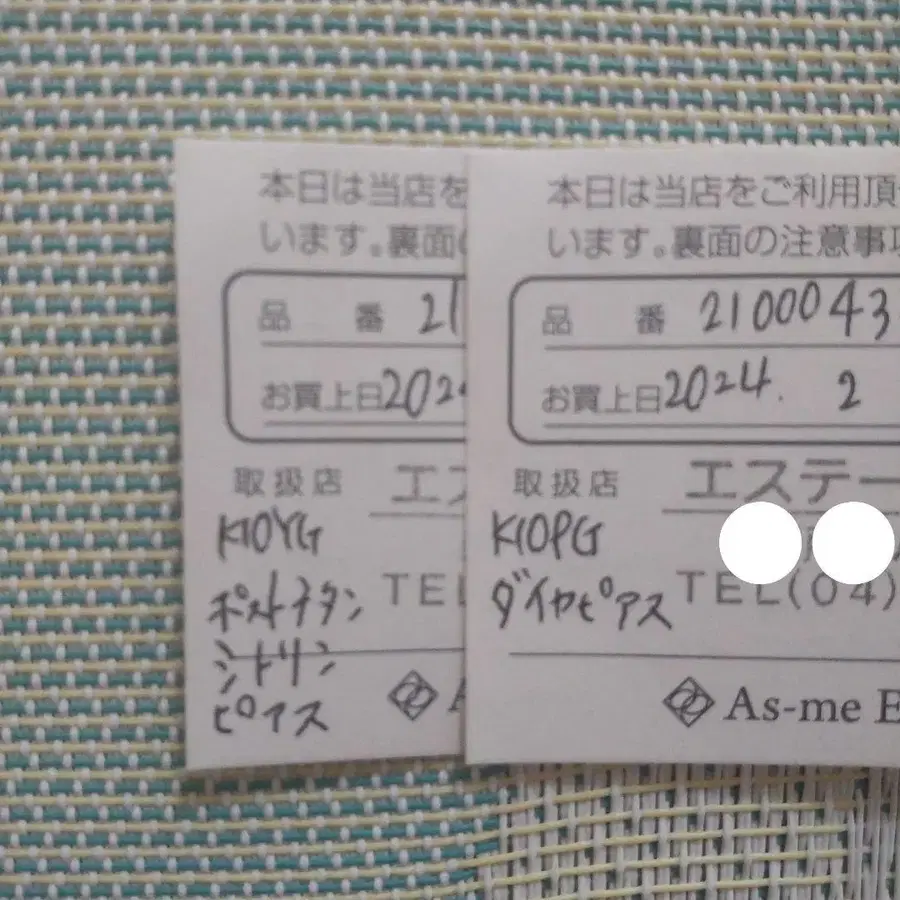 本日は当店を
います。裏面の
品 番 21
お買上日 202
取扱店 エス
K10YG
ポストチタン
シトリン
ピアス
TEL
本日は当店をご利用頂
います。裏面の注意事項
品 番 2100043
お買上日 2024. 2
取扱店 エステー
K10PG
ダイヤピアス
TEL(04)
As-me E